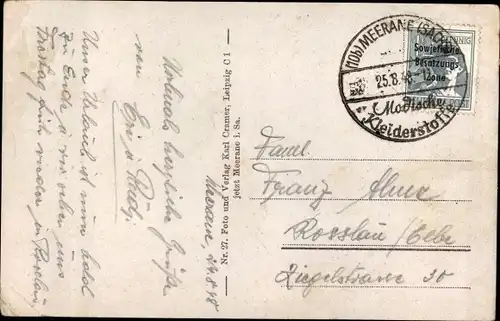 Unser Urlaub ist nun bald
zu Ende u wir
Freitag früh wieder in Rosslau.
Nochmals herzliche Grüße
von
Meerane, 24.8.48
Nr. 27. Foto und Verlag Karl Cramer, Leipzig C 1
jetzt Meerane i. Sa.
(10b) MEERANE (SACHS)
25.8.48
Modische
Kleiderstoffe
PFENNIG
Sowjetische
Besatzungs
Zone
Faml.
Franz
Rosslau / Elbe
Ziegelstrasse 30